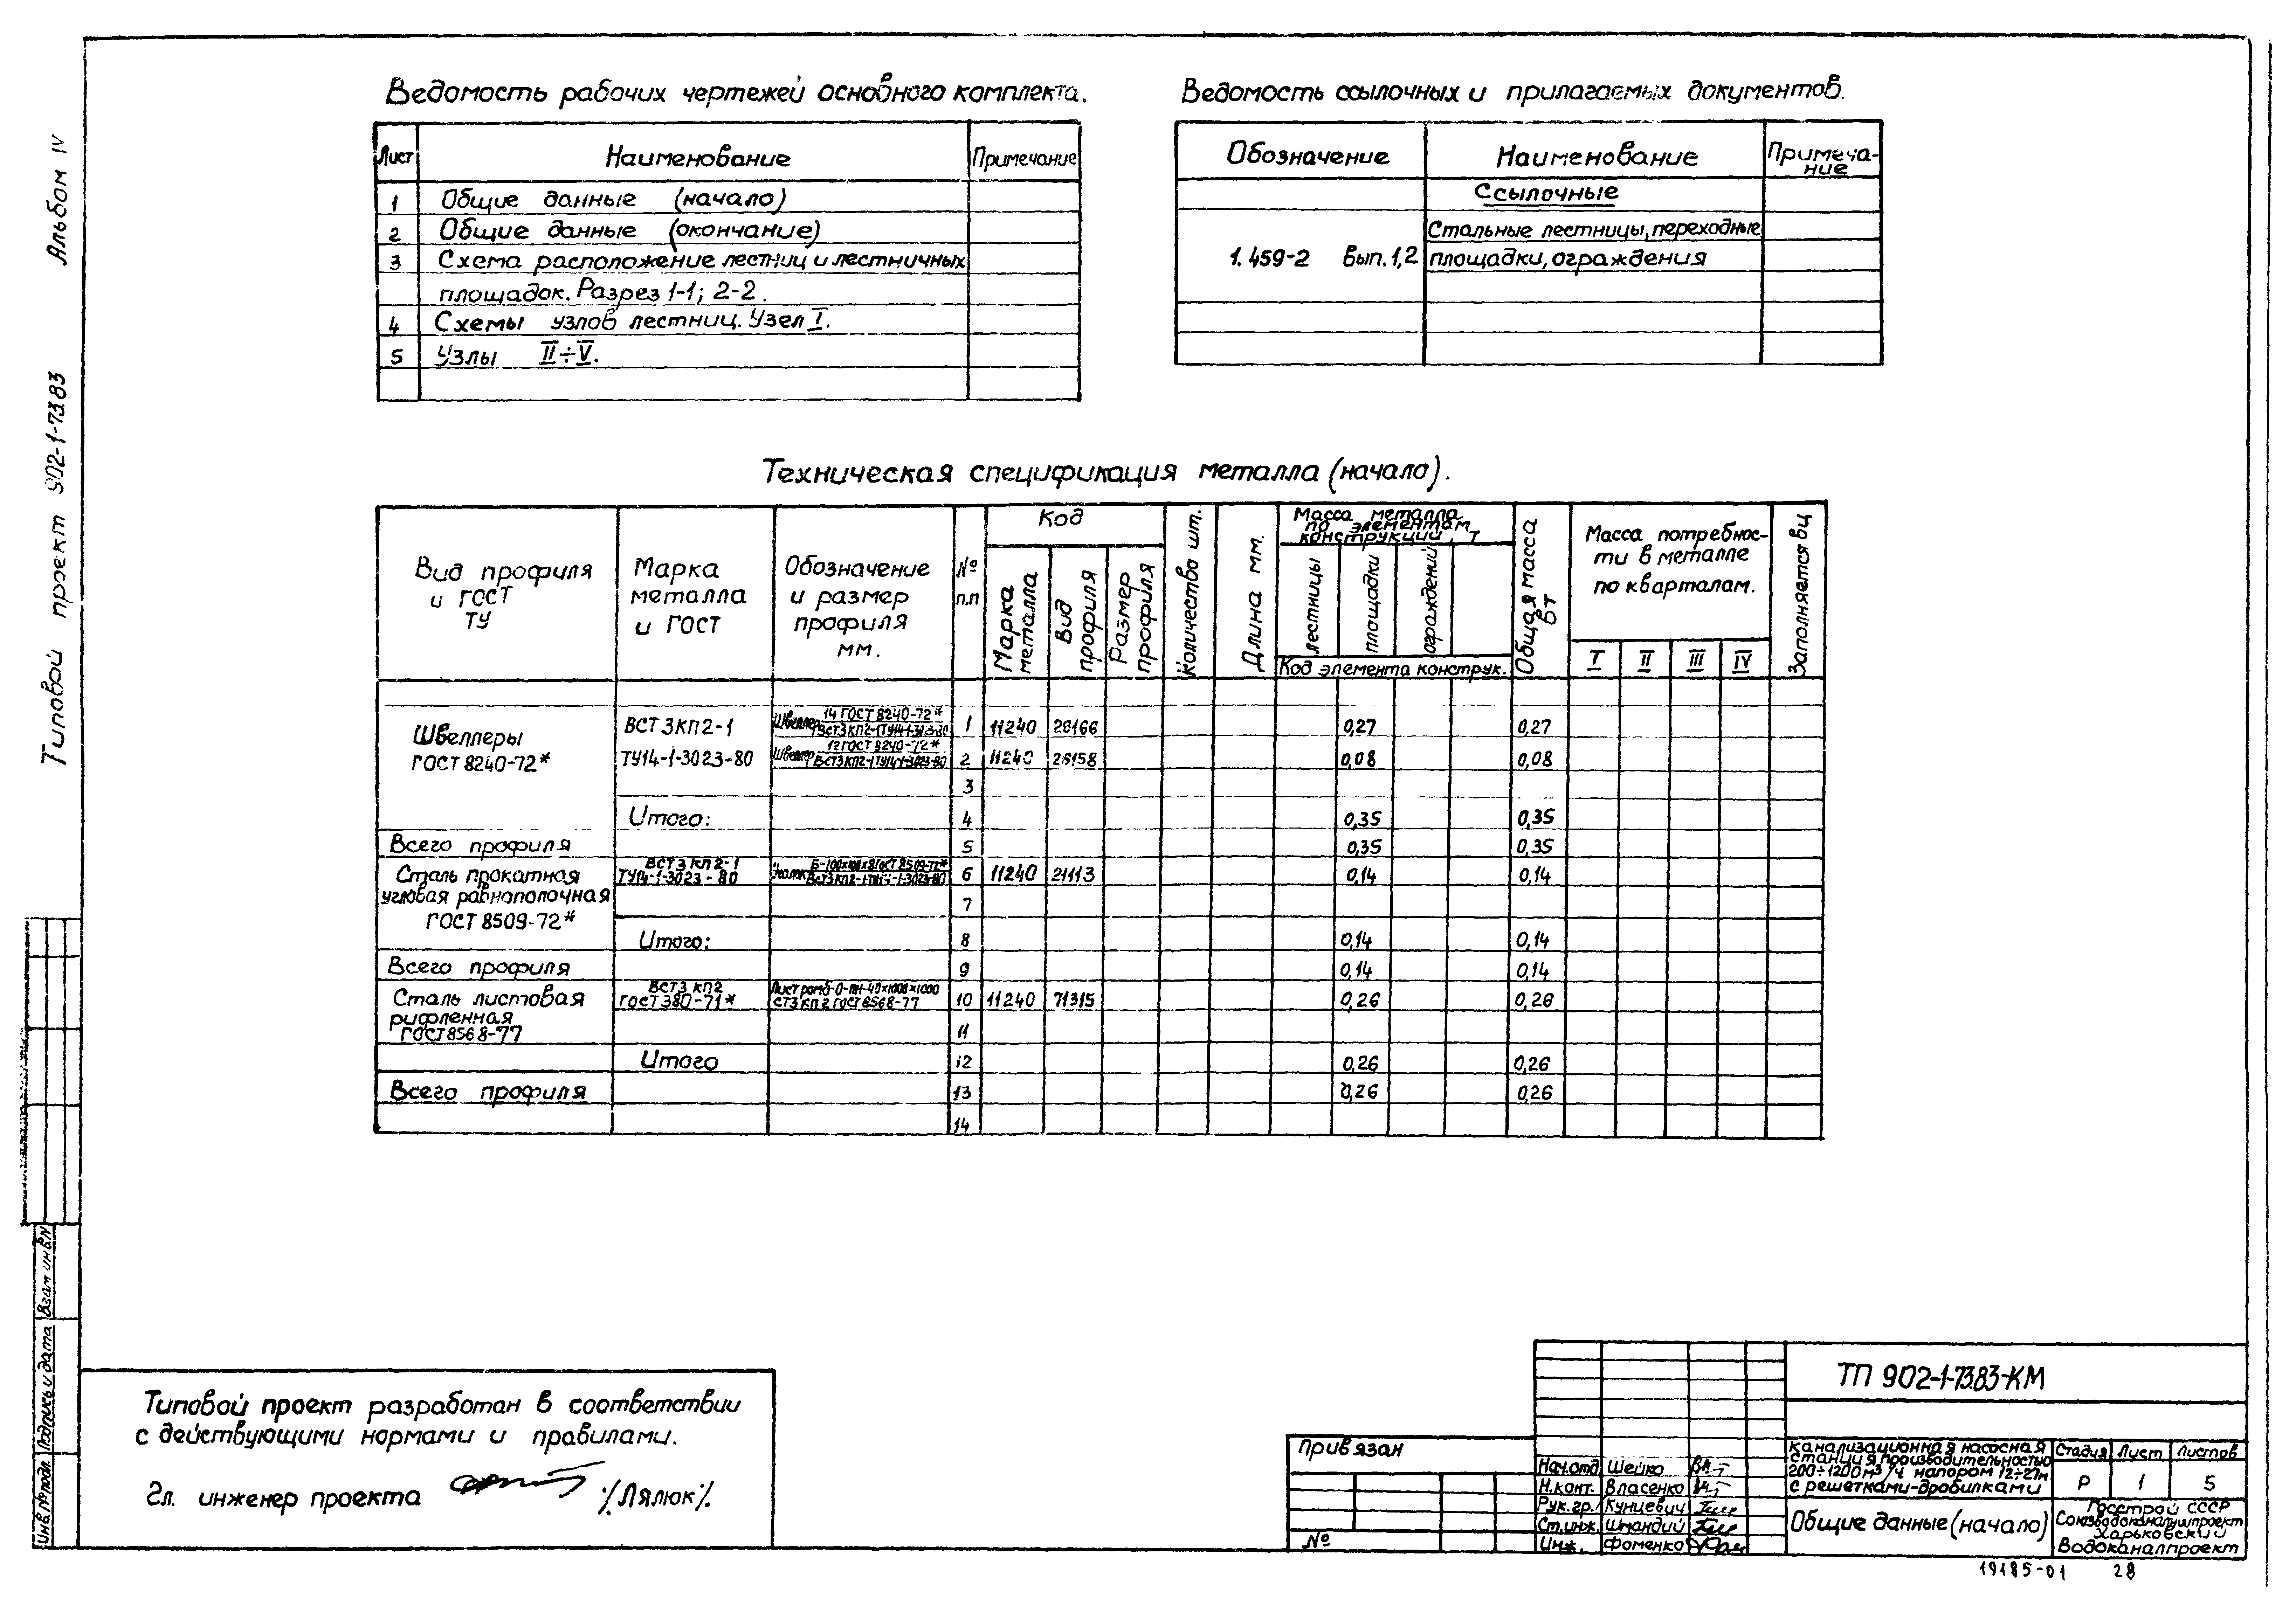 Альбом IV
Типовой проект 902-1-73.83
Ведомость рабочих чертежей основного комплекта.
Лист Наименование Примечание
1 Общие данные (начало)
2 Общие данные (окончание)
3 Схема расположение лестниц и лестничных
площадок. Разрез 1-1; 2-2.
4 Схемы узлов лестниц. Узел I.
5 Узлы II÷V.
Ведомость ссылочных и прилагаемых документов.
Обозначение Наименование Примеча-
ние
Ссылочные
Стальные лестницы, переходные
1.459-2 Вып.1,2 площадки, ограждения
Техническая спецификация металла (начало).
Вид профиля
и ГОСТ
ТУ
Марка
металла
и ГОСТ
Обозначение
и размер
профиля
мм.
№
п.п
Код
Марка
металла
Вид
профиля
Размер
профиля
Количество шт.
Длина мм.
Масса металла
по элементам
конструкции, т
лестницы
площадки
ограждений
Код элемента конструк.
Общая масса
в т
Масса потребнос-
ти в металле
по кварталам.
I II III IV
Заполняется вц
Швеллеры
ГОСТ 8240-72*
ВСТ3КП2-1
ТУ14-1-3023-80
Швеллер 14 ГОСТ 8240-72*
ВСт3КП2-1ТУ14-1-3023-80
1 11240 26166 0,27 0,27
Швеллер 12 ГОСТ 8240-72*
ВСТ3КП2-1ТУ14-1-3023-80
2 11240 26158 0,08 0,08
3
Итого: 4 0,35 0,35
Всего профиля 5 0,35 0,35
Сталь прокатная
угловая равнополочная
ГОСТ 8509-72*
ВСТ3 КП2-1
ТУ14-1-3023-80
Уголок Б-100х100х8 ГОСТ 8509-72*
ВСт3КП2-1ТУ14-1-3023-80
6 11240 21113 0,14 0,14
7
Итого: 8 0,14 0,14
Всего профиля 9 0,14 0,14
Сталь листовая
рифленная
ГОСТ 8568-77
ВСТ3 КП2
ГОСТ 380-71*
Лист ромб-О-ПН-4,0х1000х1000
СТ3 КП2 ГОСТ 8568-77
10 11240 71315 0,26 0,26
11
Итого 12 0,26 0,26
Всего профиля 13 0,26 0,26
14
Типовой проект разработан в соответствии
с действующими нормами и правилами.
Гл. инженер проекта ⁒Лялюк⁒
Инв.№подл. Подпись и дата Взам.инв.N
Привязан
№
Нач.отд Шейко
Н.конт. Власенко
Рук.гр. Кунцевич
Ст.инж. Шмандий
Инж. Фоменко
ТП 902-1-73.83-КМ
Канализационная насосная
станция производительностью
200÷1200м³/ч напором 12÷27м
с решетками-дробилками
Стадия Лист Листов
Р 1 5
Общие данные (начало)
Госстрой СССР
Союзводоканалниипроект
Харьковский
Водоканалпроект
19185-01 28